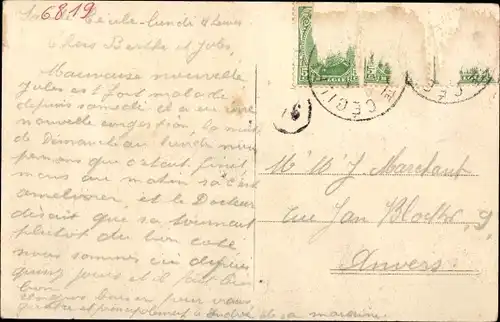 6819
Ste Cécile lundi 4 heures
Chers Berthe et Jules,
Mauvaise nouvelle
Jules est fort malade
depuis samedi et a eu une
nouvelle congestion. La nuit
de Dimanche au lundi nous
pensions que c'était fini
mais au matin sa s'est
améliorer, et le Docteur
disait que sa tournait
plutôt du bon coté
nous sommes ici depuis
quinze jours et il fait bien
bon
baiser pour vous
quatre et principalement à André de sa marraine
5
5
BELGIE
CECILE
Mr W J Marchant
rue Jan Blockx, 9
Anvers